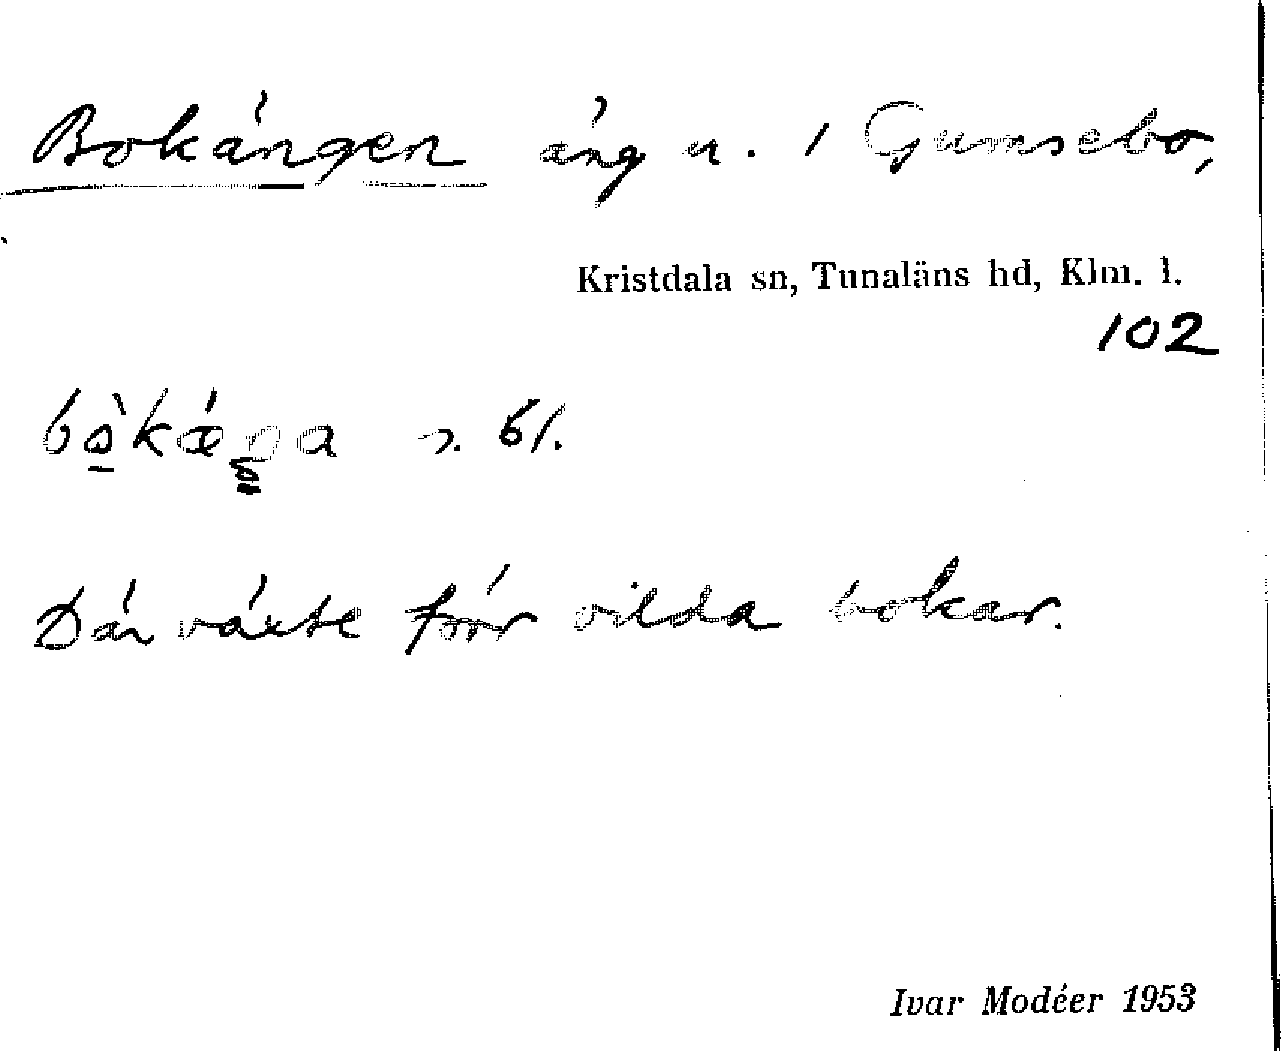 Bokängen äng u. 1 Gumsebo,
Kristdala sn, Tunaläns hd, Klm. l.
102
s. 61.
Där växte förr vilda bokar.
Ivar Modéer 1953